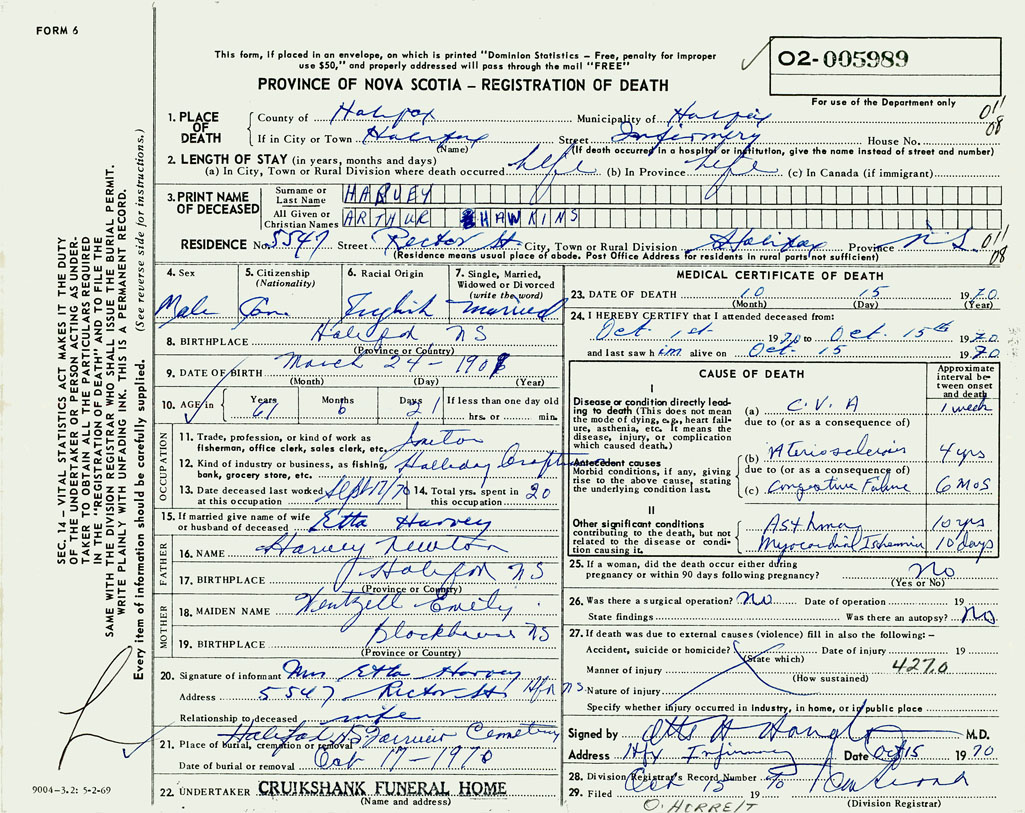 FORM 6
This form, if placed in an envelope, on which is printed "Dominion Statistics – Free, penalty for improper
use $50," and properly addressed will pass through the mail "FREE"
02-005989
PROVINCE OF NOVA SCOTIA – REGISTRATION OF DEATH
For use of the Department only
011
08
1. PLACE OF DEATH
County of Halifax Municipality of Halifax
If in City or Town Halifax Street Infirmery House No.
(Name) (If death occurred in a hospital or institution, give the name instead of street and number)
2. LENGTH OF STAY (in years, months and days)
(a) In City, Town or Rural Division where death occurred life (b) In Province life (c) In Canada (if immigrant)
3. PRINT NAME OF DECEASED
Surname or Last Name HARVEY
All Given or Christian Names ARTHUR HAWKINS
RESIDENCE No. 5547 Street Rector St City, Town or Rural Division Halifax Province N S 011
08
(Residence means usual place of abode. Post Office Address for residents in rural parts not sufficient)
4. Sex Male
5. Citizenship (Nationality) Can
6. Racial Origin English
7. Single, Married, Widowed or Divorced (write the word) Married
8. BIRTHPLACE Halifax NS
(Province or Country)
9. DATE OF BIRTH March 24 – 190
(Month) (Day) (Year)
10. AGE in Years 61 Months 6 Days 21 If less than one day old
hrs. or min.
OCCUPATION
11. Trade, profession, or kind of work as
fisherman, office clerk, sales clerk, etc.
12. Kind of industry or business, as fishing,
bank, grocery store, etc. Halliday
13. Date deceased last worked at this occupation Sept 17/70
14. Total yrs. spent in this occupation 20
15. If married give name of wife
or husband of deceased Etta Harvey
FATHER
16. NAME Harvey Newton
17. BIRTHPLACE Halifax NS
(Province or Country)
MOTHER
18. MAIDEN NAME Wentzell Emily
19. BIRTHPLACE Blockhouse NS
(Province or Country)
20. Signature of informant Mrs Etta Harvey
Address 5547 Rector St Hfx N S
Relationship to deceased wife
Halifax NS Fairview Cemetery
21. Place of burial, cremation or removal
Date of burial or removal Oct 17 – 1970
22. UNDERTAKER CRUIKSHANK FUNERAL HOME
(Name and address)
MEDICAL CERTIFICATE OF DEATH
23. DATE OF DEATH 10 15 1970
(Month) (Day) (Year)
24. I HEREBY CERTIFY that I attended deceased from:
Oct 1st 1970 to Oct. 15th 1970
and last saw him alive on Oct 15 1970
CAUSE OF DEATH
Approximate interval between onset and death
I
Disease or condition directly leading to death (This does not mean the mode of dying, e.g., heart failure, asthenia, etc. It means the disease, injury, or complication which caused death.)
(a) C.V.A 1 week
due to (or as a consequence of)
Antecedent causes
Morbid conditions, if any, giving rise to the above cause, stating the underlying condition last.
(b) 4 yrs
due to (or as a consequence of)
(c) Congestive Failure 6 Mos
II
Other significant conditions contributing to the death, but not related to the disease or condition causing it.
Asthma 10 yrs
Myocardial Ischemia 10 days
25. If a woman, did the death occur either during
pregnancy or within 90 days following pregnancy? No
(Yes or No)
26. Was there a surgical operation? No Date of operation 19
State findings Was there an autopsy? No
27. If death was due to external causes (violence) fill in also the following:–
Accident, suicide or homicide? Date of injury 19
(State which)
Manner of injury 4270
(How sustained)
Nature of injury
Specify whether injury occurred in industry, in home, or in public place
Signed by M.D.
Address Hfx Infirmary Date Oct 15 1970
28. Division Registrar's Record Number
29. Filed Oct 15 1970
(Division Registrar)
SEC. 14 – VITAL STATISTICS ACT MAKES IT THE DUTY
OF THE UNDERTAKER OR PERSON ACTING AS UNDERTAKER
TO OBTAIN ALL THE PARTICULARS REQUIRED
IN THE "REGISTRATION OF DEATH" AND TO FILE THE
SAME WITH THE DIVISION REGISTRAR WHO SHALL ISSUE THE BURIAL PERMIT.
WRITE PLAINLY WITH UNFADING INK. THIS IS A PERMANENT RECORD.
Every item of information should be carefully supplied. (See reverse side for instructions.)
9004-3.2: 5-2-69